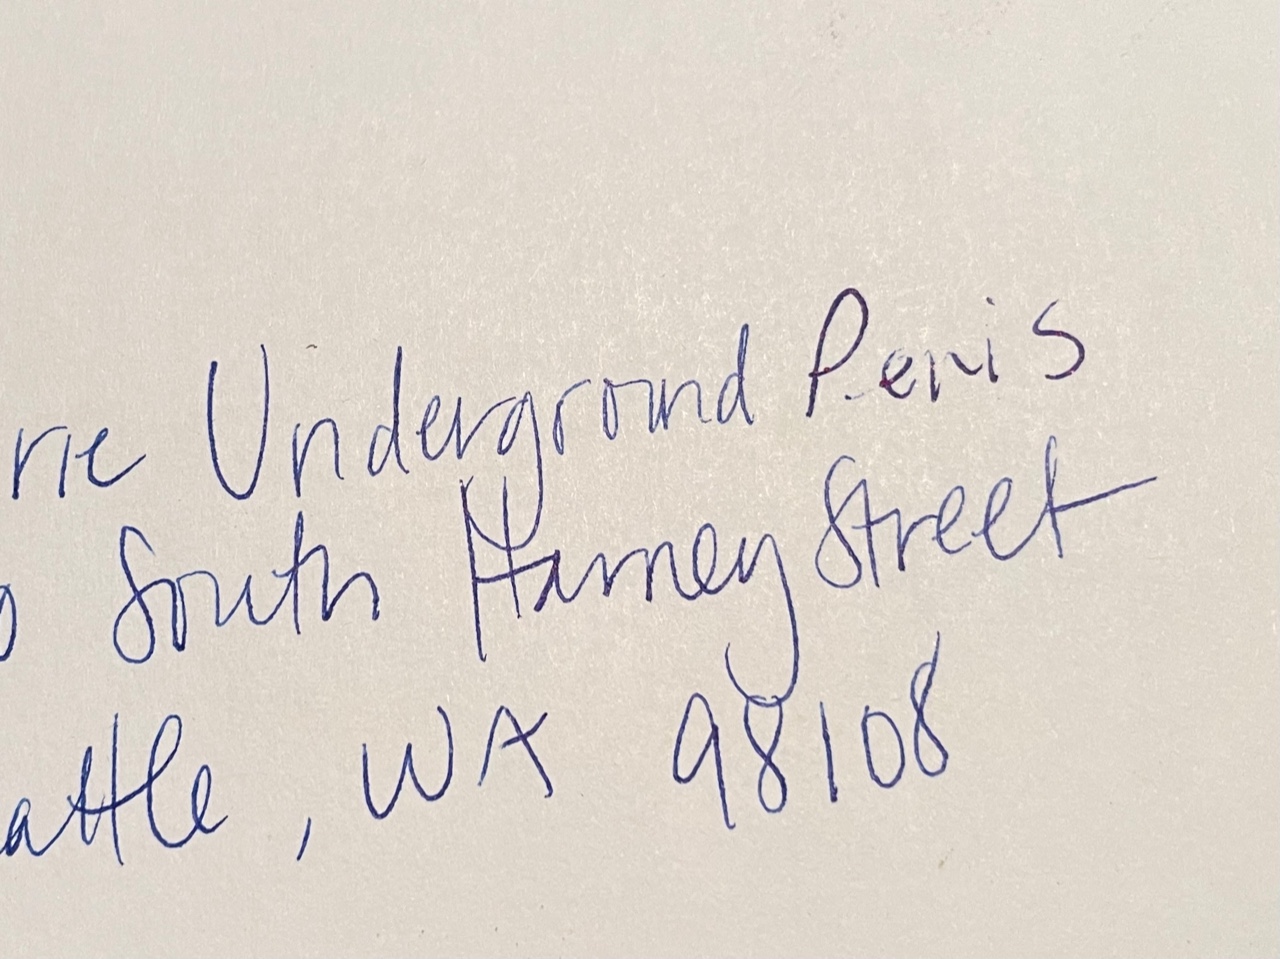 rie Underground Penis
0 South Harney Street
attle, WA 98108